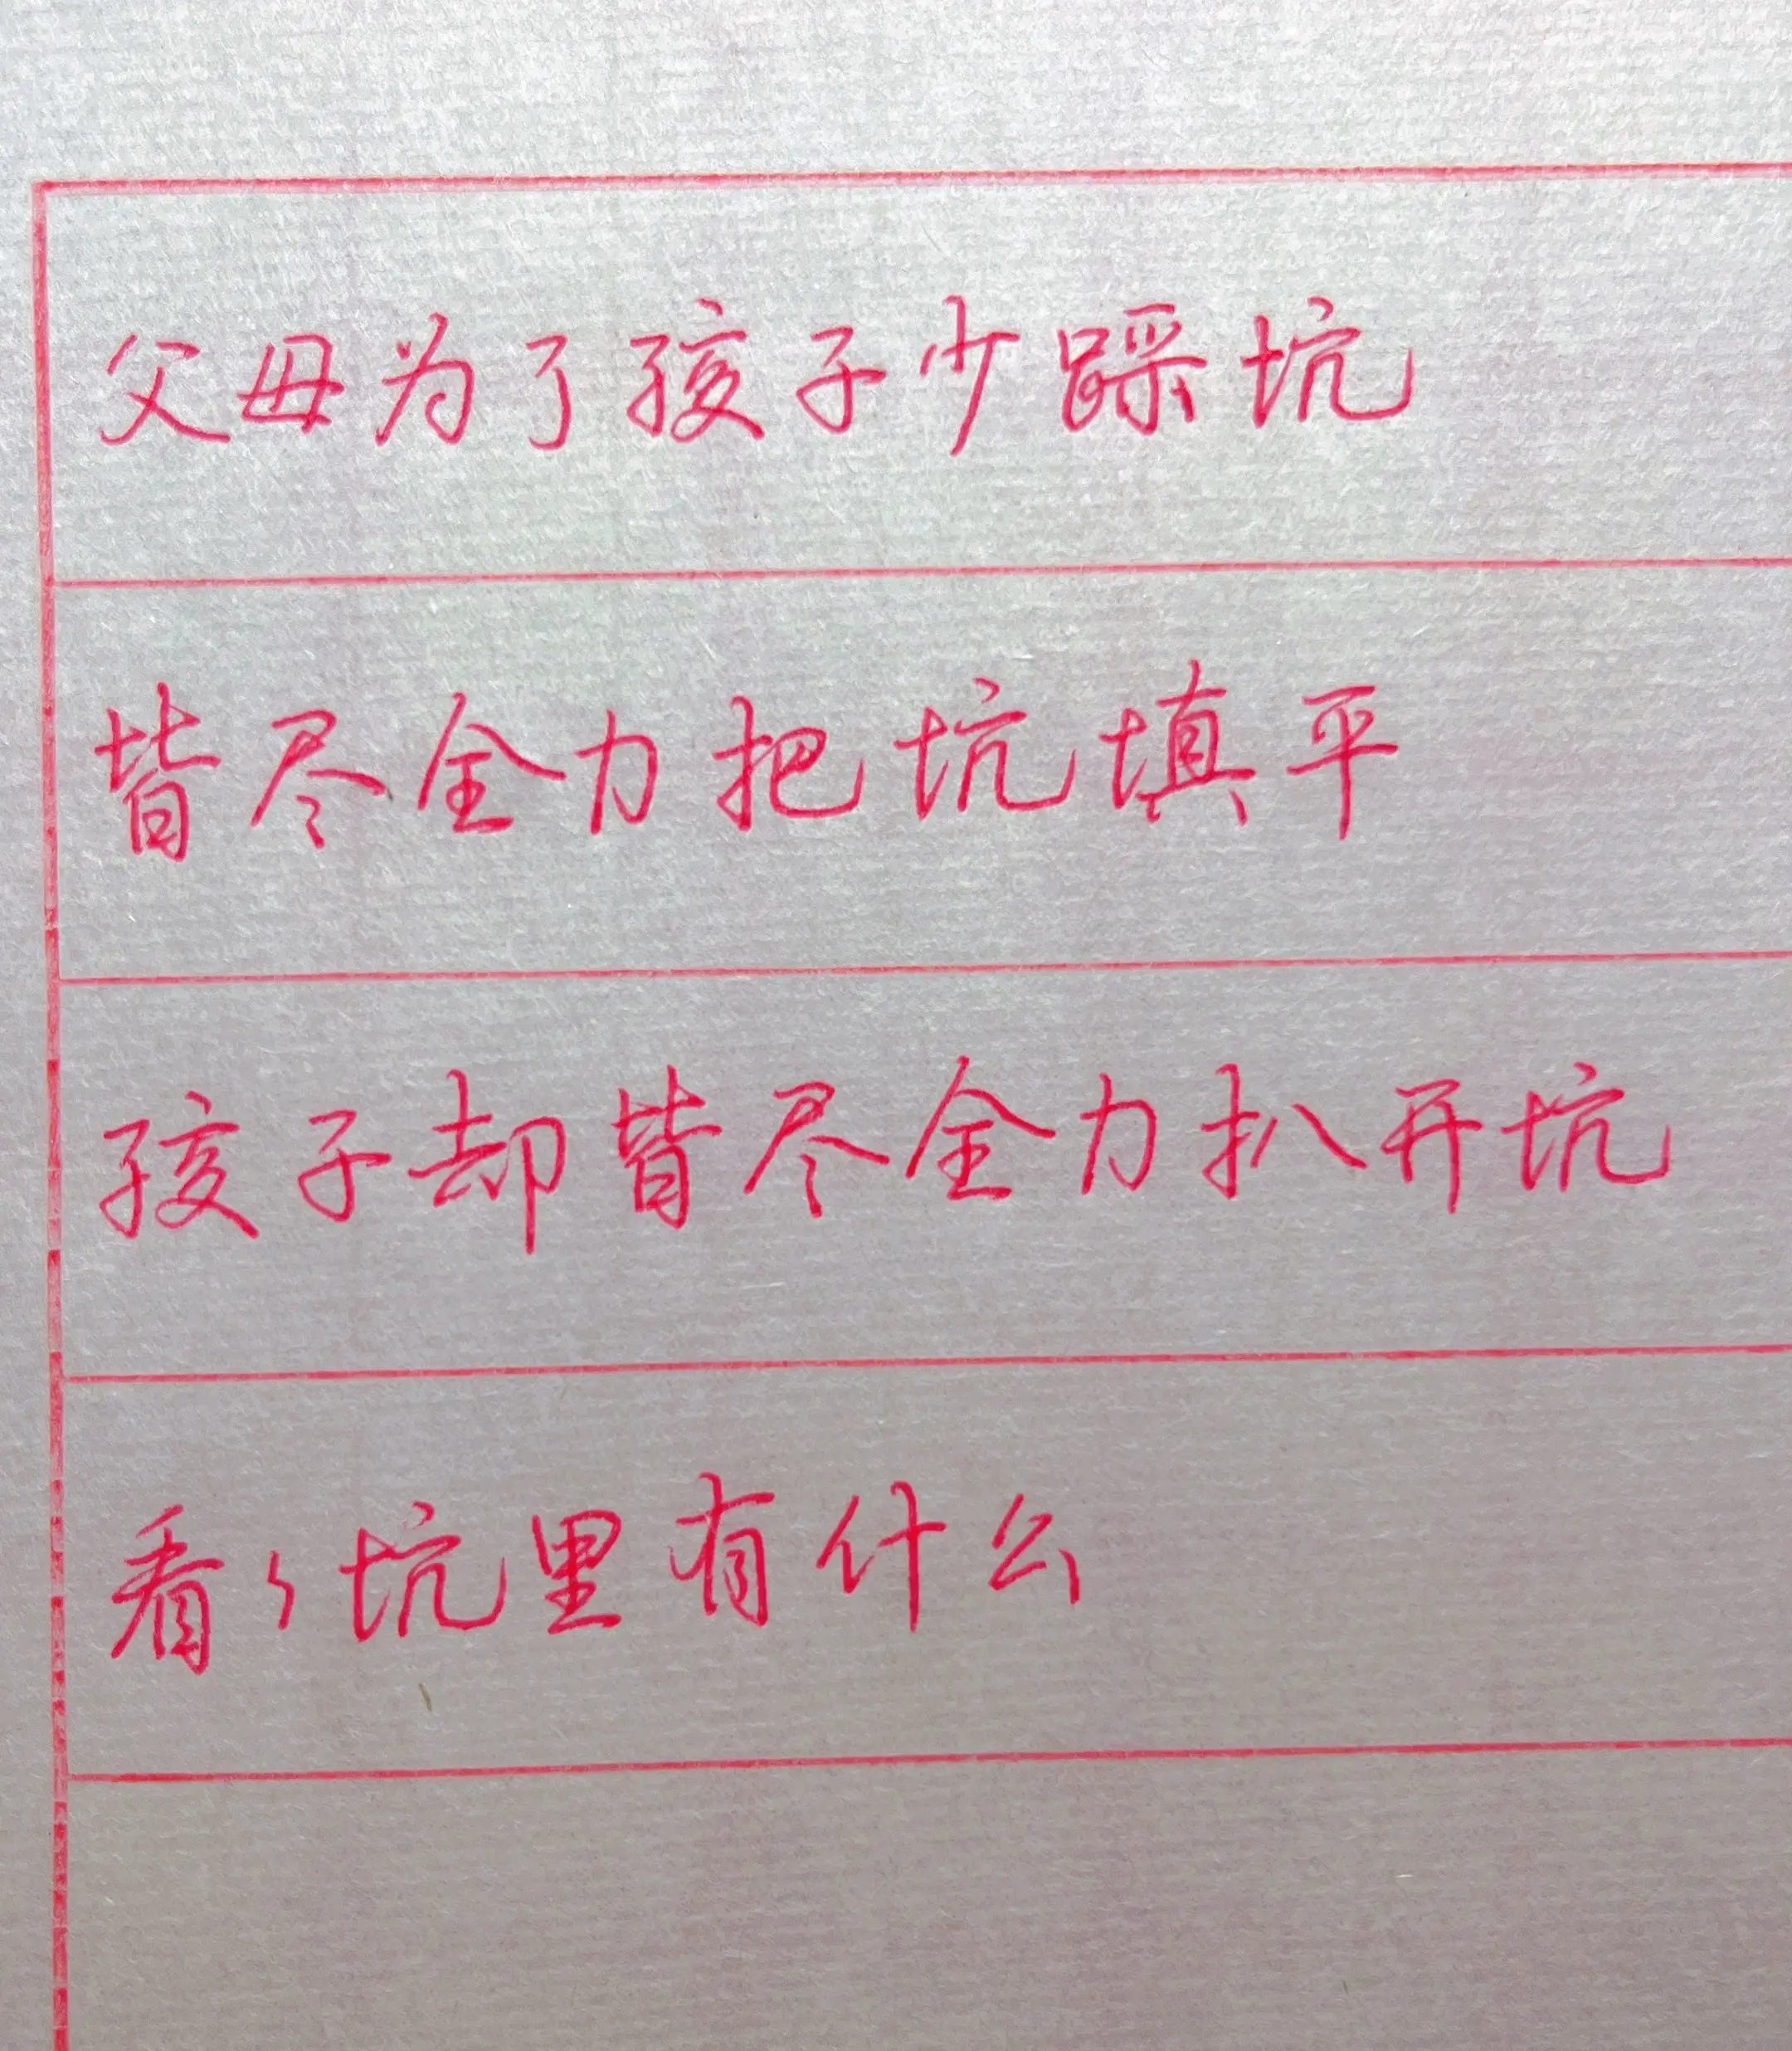 父母为了孩子少踩坑
皆尽全力把坑填平
孩子却皆尽全力扒开坑
看々坑里有什么